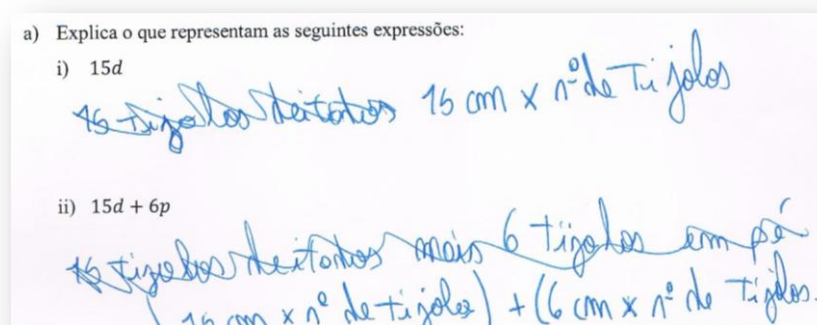 a) Explica o que representam as seguintes expressões:
i) 15d
15 tijolos deitados 15 cm x nº de Tijolos
ii) 15d + 6p
15 tijolos deitados mais 6 tijolos em pé
(15 cm x nº de tijolos) + (6 cm x nº de Tijolos.